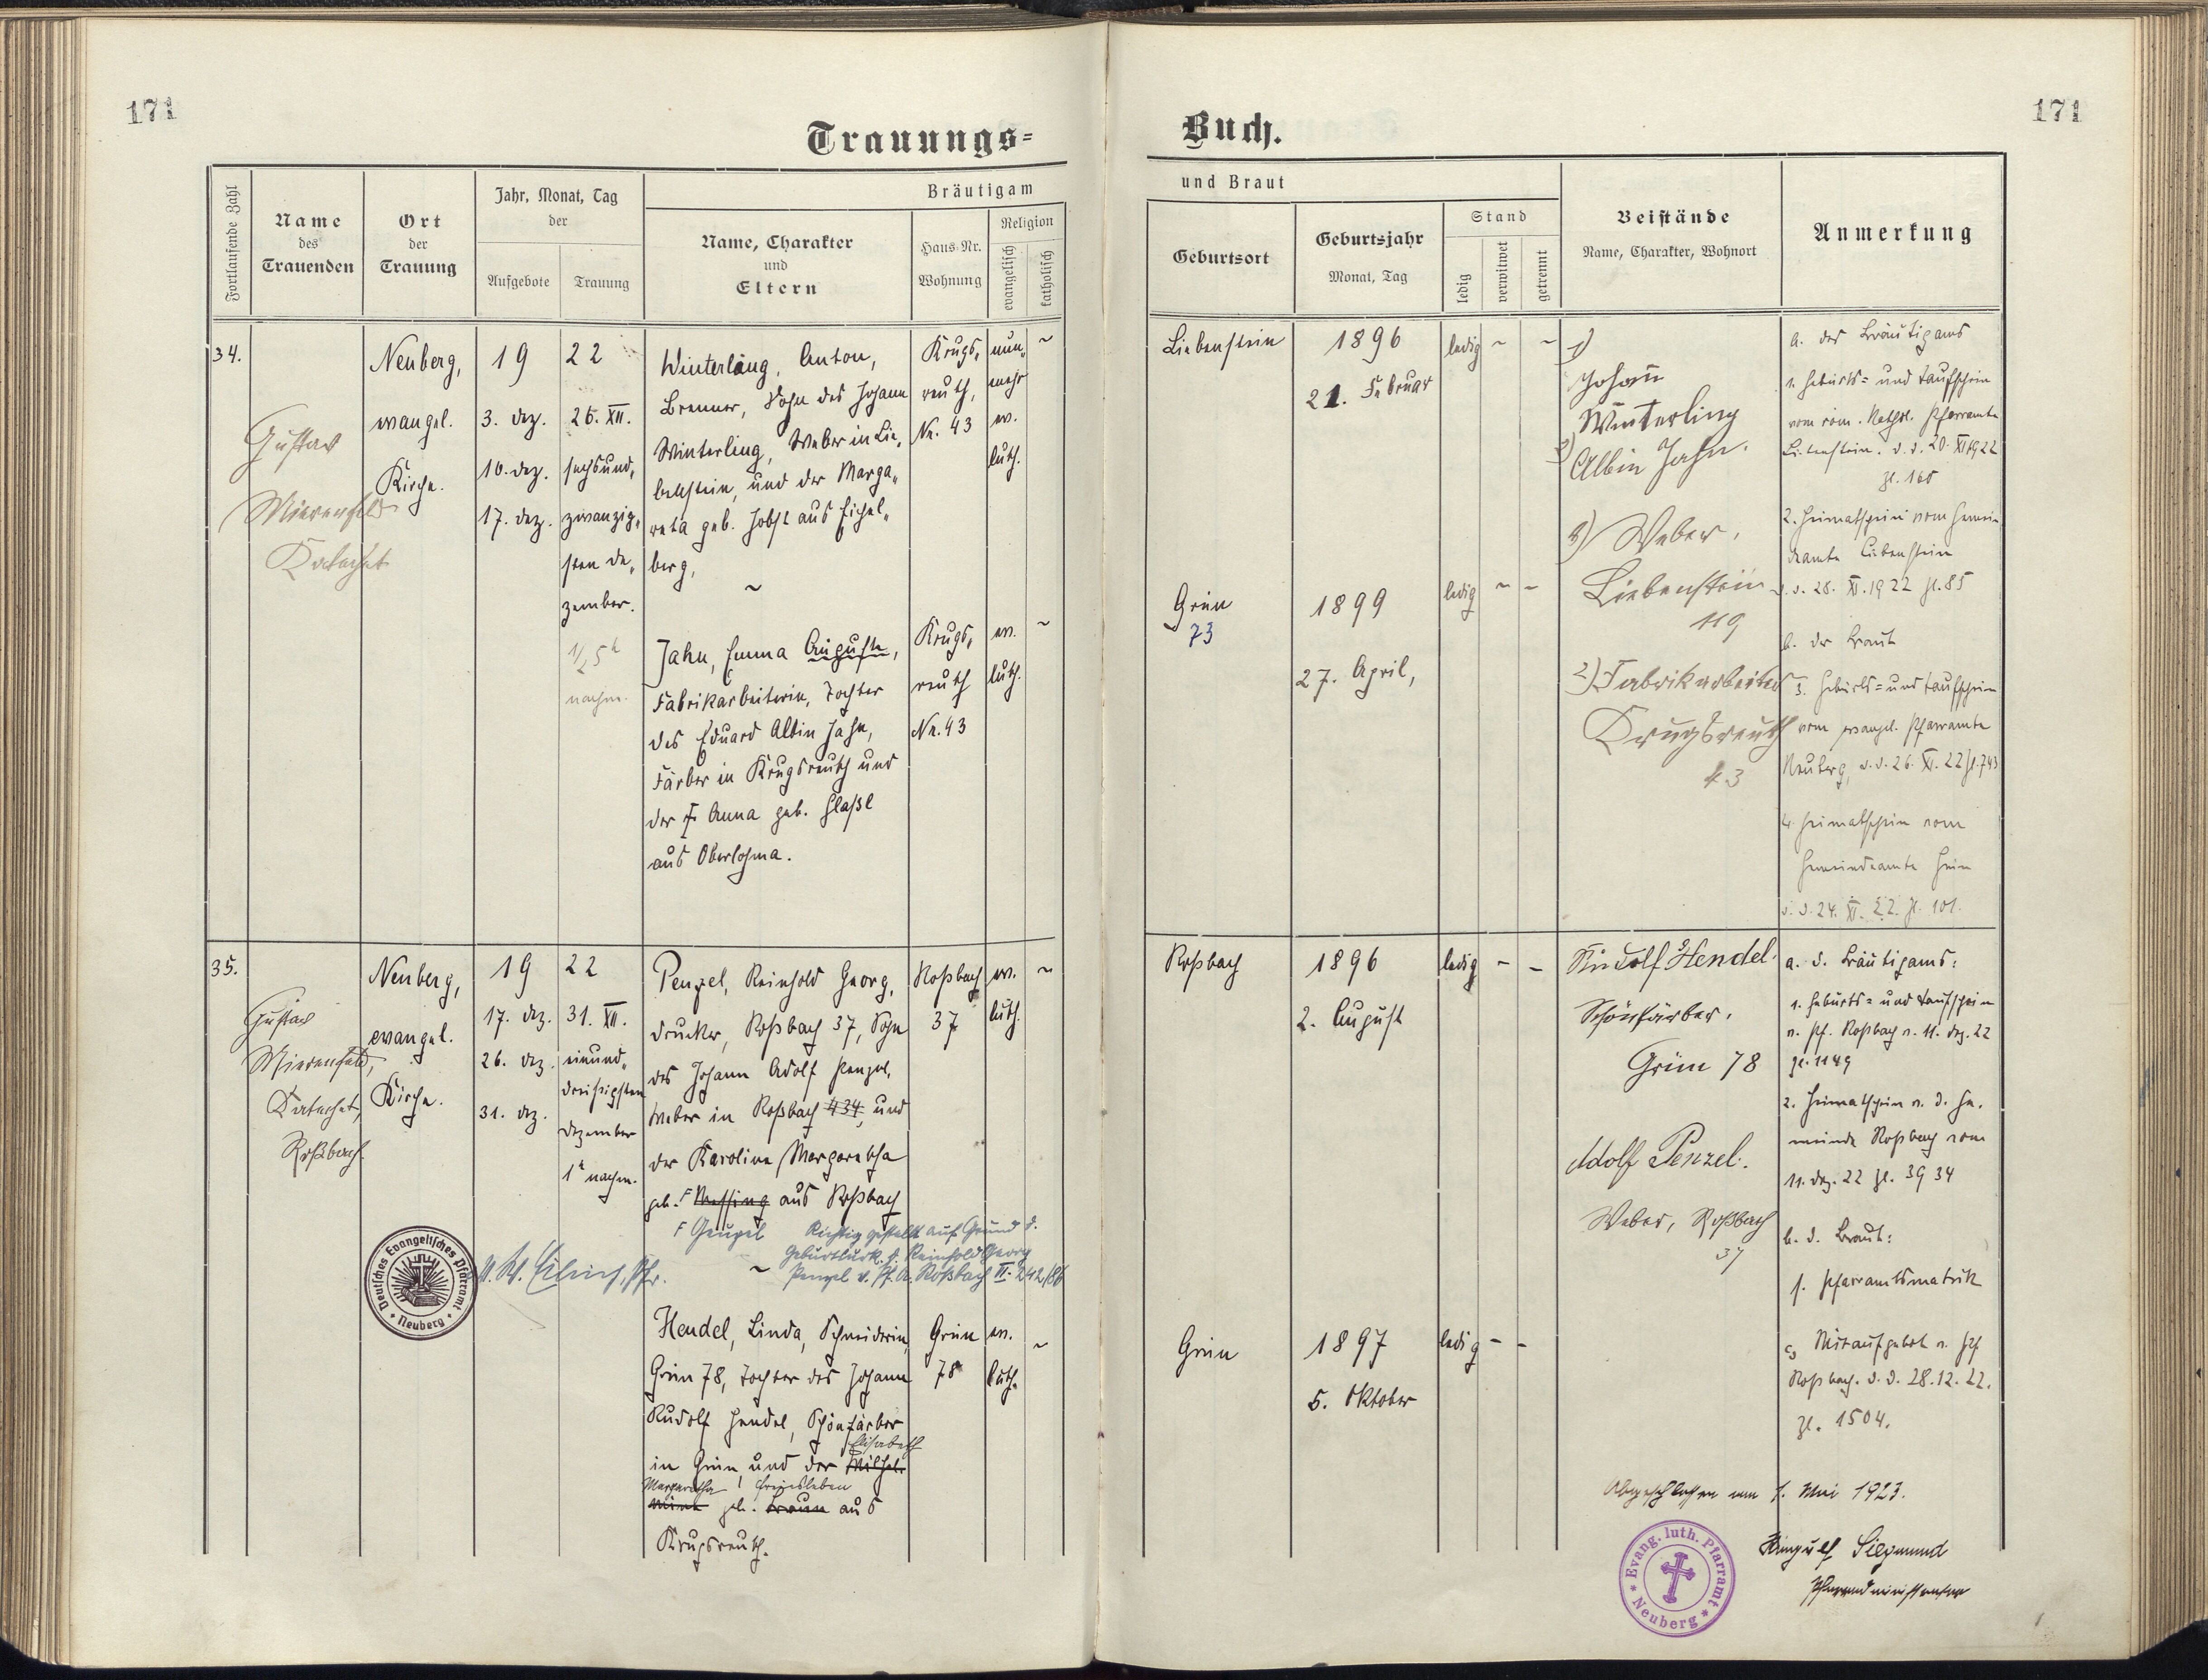 171
Trauungs=
Fortlaufende Zahl
Name
des
Trauenden
Ort
der
Trauung
Jahr, Monat, Tag
der
Aufgebote
Trauung
Bräutigam
Name, Charakter
und
Eltern
Haus-Nr.
Wohnung
Religion
evangelisch
katholisch
34.
Gustav
Mierenfeld
Katechet
Neuberg,
evangel.
Kirche.
19 22
3. Dez.
10. Dez.
17. Dez.
26. XII.
sechsund„
zwanzig„
sten De„
zember.
1/2 5 h
nachm.
Winterling, Anton,
Brenner, Sohn des Johann
Winterling, Weber in Lie„
benstein, und der Marga„
reta geb. Jobst aus Eichel„
berg,
Krugs„
reuth,
Nr. 43
nun„
mehr
ev.
luth.
Jahn, Emma Auguste,
Fabrikarbeiterin, Tochter
des Eduard Albin Jahn,
Färber in Krugsreuth und
der Anna geb. Glaßl
aus Oberlohma.
Krugs„
reuth
Nr. 43
ev.
luth.
35.
Gustav
Mierenfeld,
Katechet,
Roßbach.
Neuberg,
evangel.
Kirche.
19 22
17. Dez.
26. Dez.
31. Dez.
31. XII.
einund„
dreißigsten
Dezember
1 h nachm.
Penzel, Reinhold Georg,
Drucker, Roßbach 37, Sohn
des Johann Adolf Penzel,
Weber in Roßbach 434, und
der Karolina Margaretha
geb. F Messing aus Roßbach
F Geupel Richtig gestellt auf Grund d.
Geburtsurk. f. Reinhold Georg
Penzel v. Pf. A. Roßbach III. 242/86
Roßbach
37
ev.
luth.
Deutsches Evangelisches Pfarramt
Neuberg
Hendel, Linda, Schneiderin,
Grün 78, Tochter des Johann
Rudolf Hendel, Schönfärber
Elisabeth
in Grün, und der Wilhel„
Margaretha Freiesleben
mine geb. Braun aus
Krugsreuth.
Grün
78
ev.
luth.
171
Buch.
und Braut
Geburtsort
Geburtsjahr
Monat, Tag
Stand
ledig
verwitwet
getrennt
Beistände
Name, Charakter, Wohnort
Anmerkung
Liebenstein
1896
21. Februar
ledig
1)
Johann
Winterling
2) Albin Jahn.
1) Weber,
Liebenstein
119
2) Fabrikarbeiter
Krugsreuth
43
a. des Bräutigams
1. Geburts= und Taufschein
vom röm. kathol. Pfarramte
Liebenstein. d. d. 20. XI 1922
Zl. 165
2. Heimatschein vom Gemein
deamte Liebenstein
d. d. 28. XI. 1922 Zl. 85
b. der Braut
3. Geburts= und Taufschein
vom evangel. Pfarramte
Neuberg, d. d. 26. XI. 22 Zl. 743
4. Heimatschein vom
Gemeindeamte Grün
d. d. 24. XI. 22. Zl. 101.
Grün
73
1899
27. April,
ledig
Roßbach
1896
2. August
ledig
Rudolf Hendel.
Schönfärber.
Grün 78
Adolf Penzel.
Weber, Roßbach
37
a. d. Bräutigams:
1. Geburts= und Taufschein
v. Pf. Roßbach v. 11. Dez. 22
Zl. 1149
2. Heimatschein v. d. Ge.
meinde Roßbach vom
11. Dez. 22 Zl. 3934
b. d. Braut:
1. Pfarramtsmatrik
Mitaufgebot v. Pf
Roßbach. d. d. 28.12.22.
Zl. 1504.
Grün
1897
5. Oktober
ledig
Abgeschlossen am 1. Mai 1923.
Siegmund
Pfarradministrator
Evang. luth. Pfarramt
Neuberg